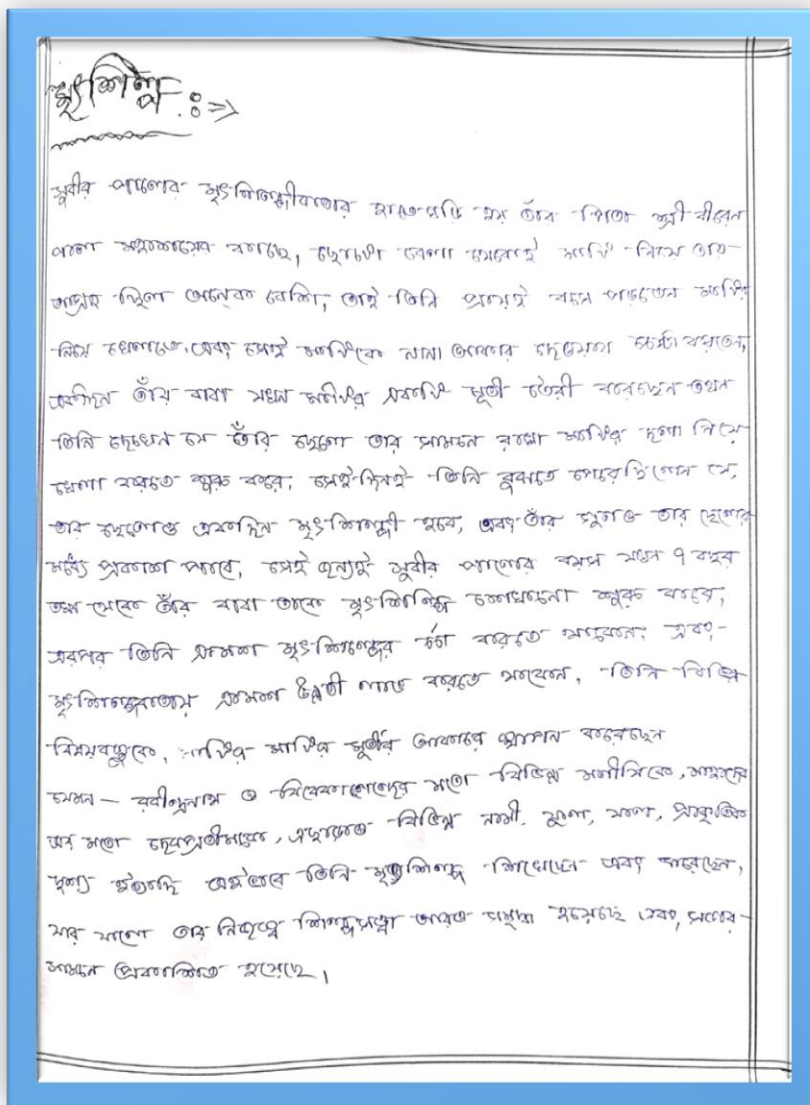 মৃৎশিল্প :⇒
সুবীর পালের মৃৎশিল্পীকতার হাতেখড়ি হয় তাঁর পিতা শ্রী বীরেন
পাল মহাশয়ের কাছে, ছোটো বেলা থেকেই মাটি নিয়ে তার
আগ্রহ ছিল অনেক বেশি, তাই তিনি প্রায়ই বসে পড়তেন মাটি
নিয়ে খেলাতে, এবং সেই মাটিকে নানা আকার দেওয়ার চেষ্টা করতেন,
একদিন তাঁর বাবা যখন মাটির একটি মূর্তী তৈরী করেছেন তখন
তিনি দেখেন যে তাঁর ছেলে তার সামনে রাখা মাটির দলা নিয়ে
খেলা করতে শুরু করে, সেই দিনই তিনি বুঝতে পেরেছিলেন যে,
তার ছেলেও একদিন মৃৎশিল্পী হবে, এবং তাঁর গুনও তার ছেলের
মধ্যে প্রকাশ পাবে, সেই জন্যই সুবীর পালের বয়স যখন ৭ বছর
তখন থেকে তাঁর বাবা তাকে মৃৎশিল্প শেখানো শুরু করে,
এরপর তিনি ক্রমশ মৃৎশিল্পের চর্চা করতে থাকেন, এবং
মৃৎশিল্পকলায় ক্রমশ উন্নতী লাভ করতে থাকেন, তিনি বিভিন্ন
বিষয়বস্তুকে, মাটির মূর্তীর আকারে স্থাপন করেছেন
যেমন – রবীন্দ্রনাথ ও বিবেকানন্দের মতো বিভিন্ন মনীষিকে,
মতো দেবপ্রতীমাকে, এছাড়াও বিভিন্ন নারী, ফুল, ফল, প্রাকৃতিক
দৃশ্য ইত্যাদি এইভাবে তিনি মৃৎশিল্প শিখেছেন এবং করেছেন,
যার ফলে তার নিজস্ব শিল্পসত্ত্বা আরও সমৃদ্ধ হয়েছে এবং, সবার
সামনে প্রকাশিত হয়েছে।